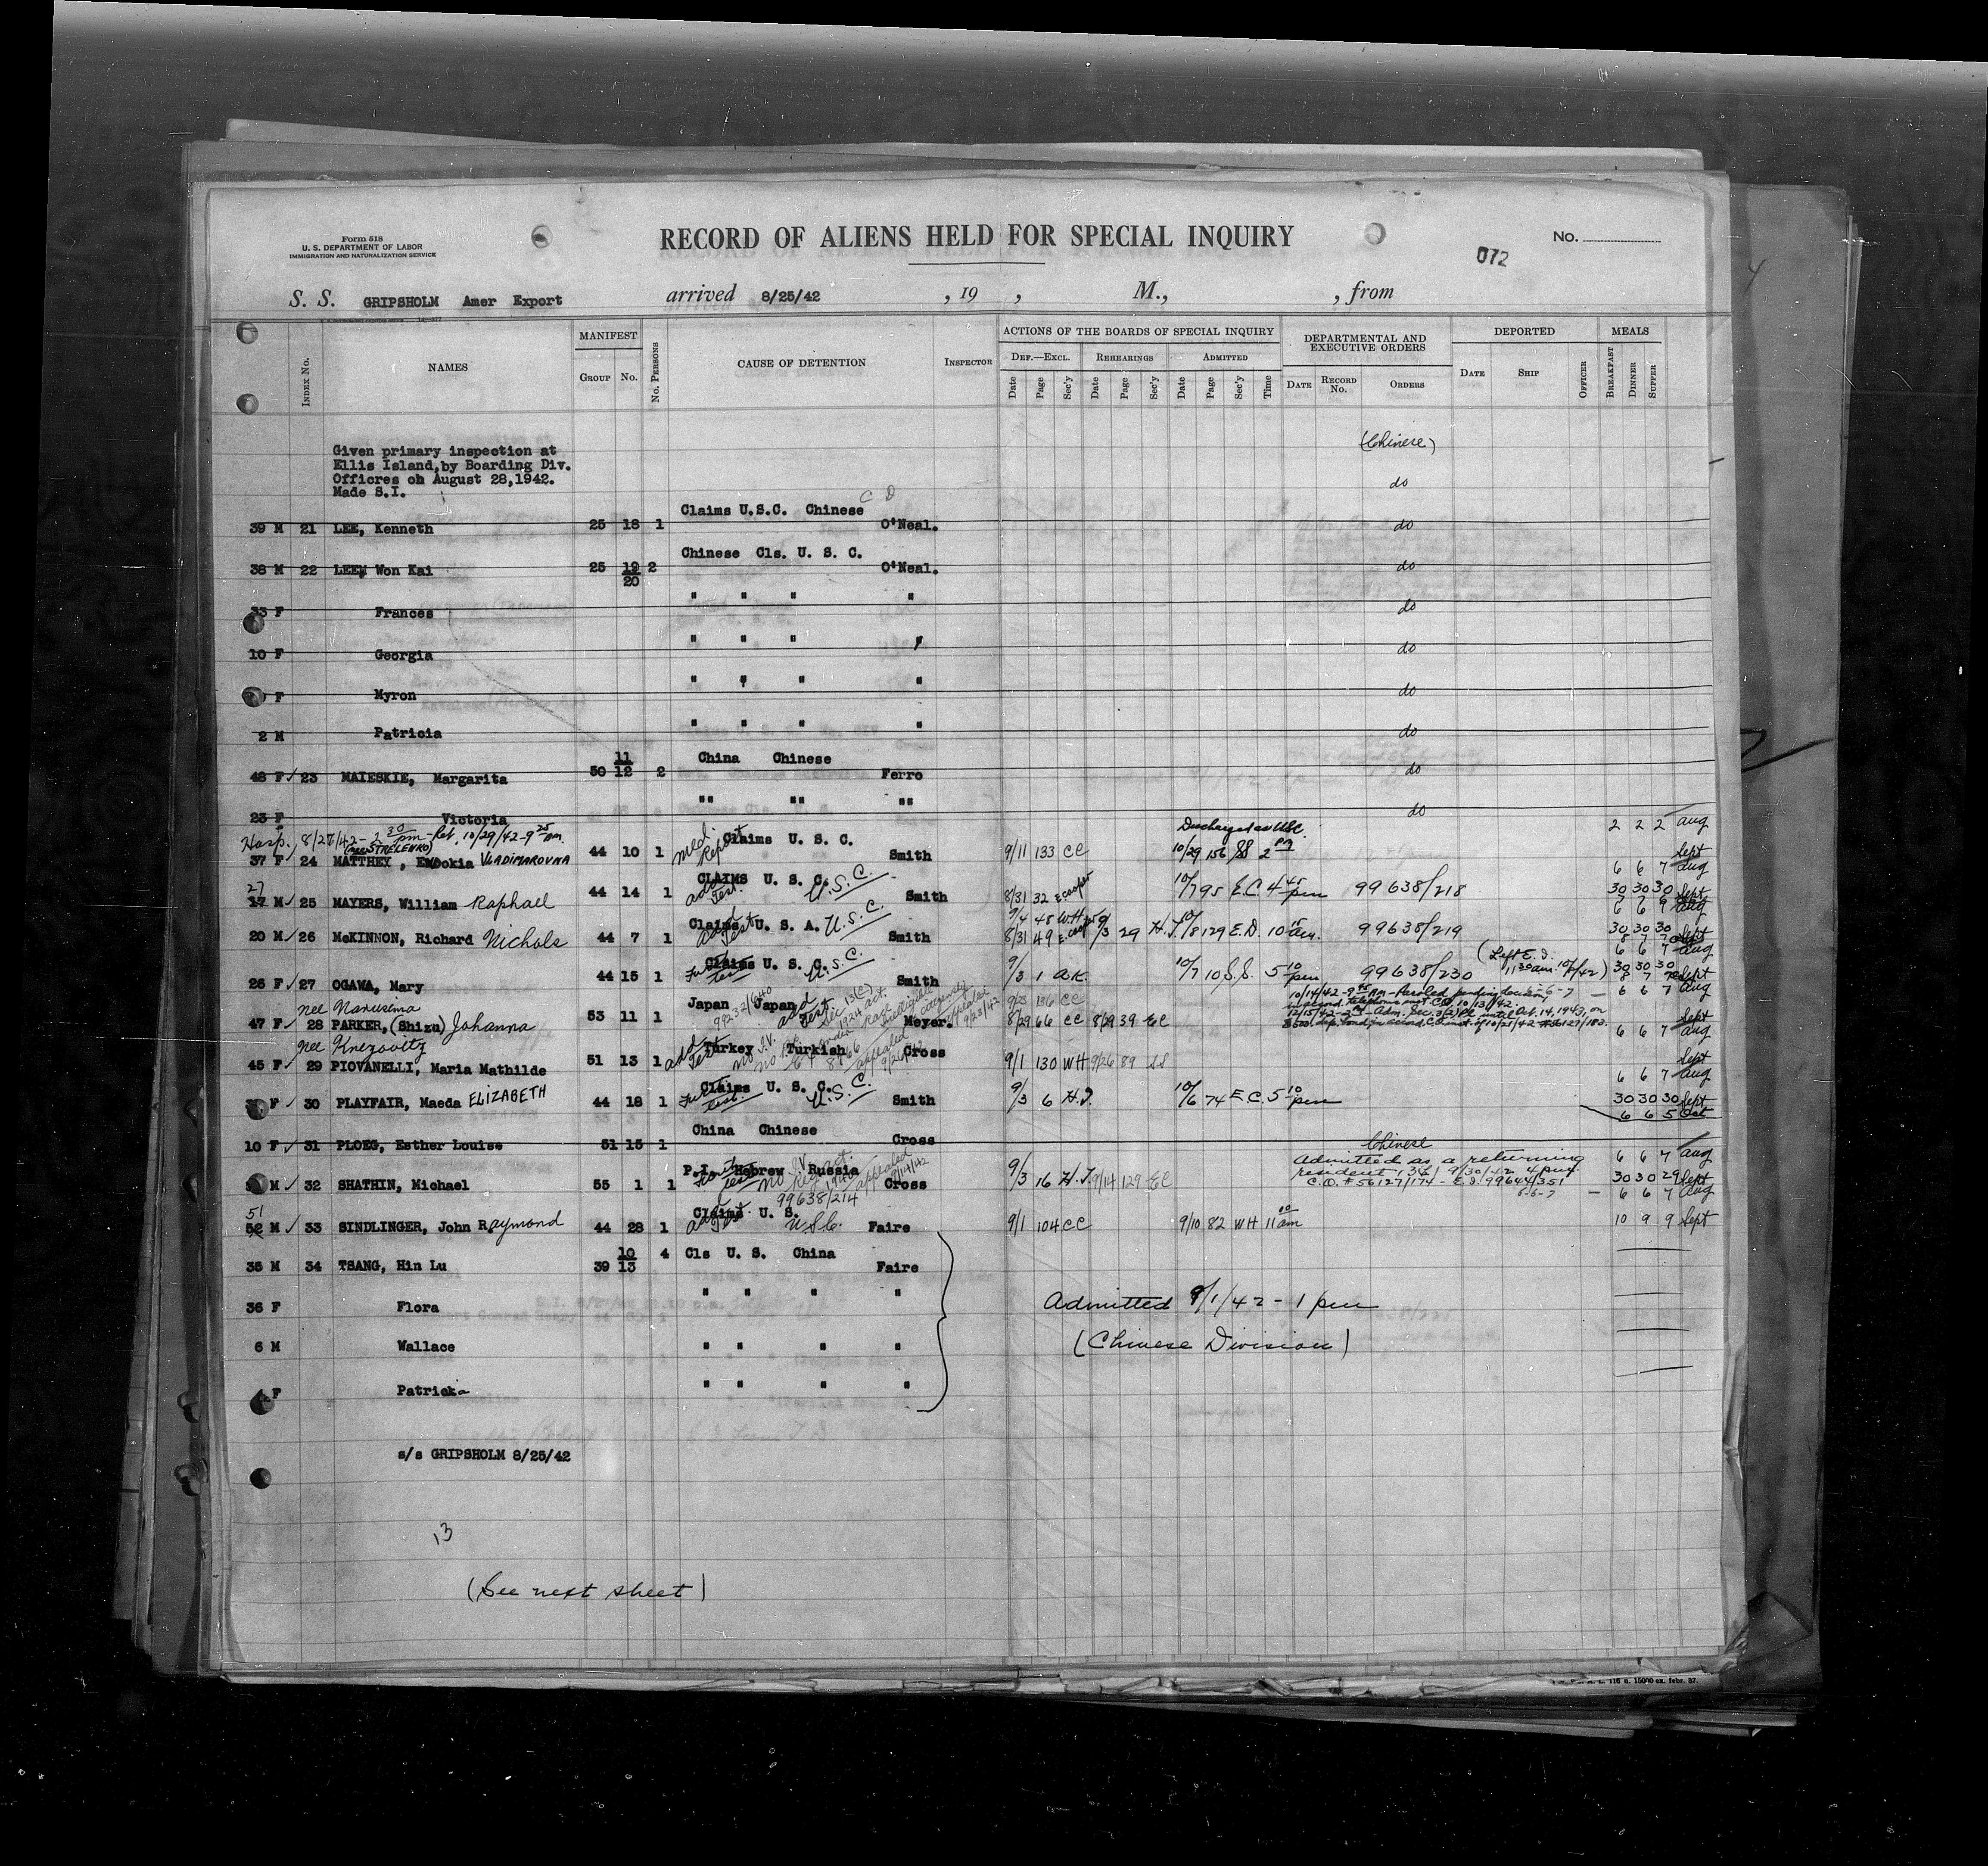 Form 518
U. S. DEPARTMENT OF LABOR
IMMIGRATION AND NATURALIZATION SERVICE
RECORD OF ALIENS HELD FOR SPECIAL INQUIRY
No.
072
S. S. GRIPSHOLM Amer Export arrived 8/25/42 , 19 , M., , from
Index No. NAMES MANIFEST Group No. No. Persons CAUSE OF DETENTION Inspector
ACTIONS OF THE BOARDS OF SPECIAL INQUIRY
Def.—Excl. Rehearings Admitted
Date Page Sec'y Date Page Sec'y Date Page Sec'y Time
DEPARTMENTAL AND EXECUTIVE ORDERS
Date Record No. Orders
DEPORTED
Date Ship Officer
MEALS
Breakfast Dinner Supper
(Chinese)
Given primary inspection at
Ellis Island, by Boarding Div.
Officres oh August 28,1942.
Made S.I.
do
C D
Claims U.S.C. Chinese
39 M 21 LEE, Kenneth 25 18 1 O'Neal. do
Chinese Cls. U. S. C.
38 M 22 LEE, Won Kai 25 19 2 O'Neal. do
20
" " " "
33 F Frances do
" " "
10 F Georgia do
" " " "
F Myron do
" " " "
2 M Patricia do
11 China Chinese
48 F 23 MAIESKIE, Margarita 50 12 2 Ferro do
"" "" ""
23 F Victoria do
Hosp. 8/27/42 - 2 30 pm - Ret. 10/29/42 - 9 25 am. Discharged as USC. 2 2 2 Aug
(nee STRELENKO) Med. Rept Claims U. S. C.
37 F 24 MATTHEY, Evdokia VLADIMAROVNA 44 10 1 Smith 9/11 133 CC 10/29 156 SS 2 pm Sept
6 6 7 Aug
27 Add Test. CLAIMS U. S. C. U.S.C.
17 M 25 MAYERS, William Raphael 44 14 1 Smith 8/31 32 E. Cooper 10/7 95 E.C. 4 45 pm 99638/218 30 30 30 Sept
6 6 9 Aug
Add Test Claims U. S. A. U.S.C. 9/4 45 W.H.
20 M 26 McKINNON, Richard Nichols 44 7 1 Smith 8/31 49 E. Cooper 9/3 29 H.J. 10/8 129 E.D. 10 15 am. 99638/219 30 30 30 Sept
6 6 7 Aug
Claims U. S. C. U.S.C. (Left E.I. 11 30 am.
26 F 27 OGAWA, Mary 44 15 1 Smith 9/3 1 A.K. 10/7 10 S.S. 5 10 pm 99638/230 30 30 30 Sept
6 6 7 Aug
nee Narusima Japan Japan 99232/640 Add Test. 9/23 136 CC
47 F 28 PARKER, (Shizu) Johanna 53 11 1 Meyer. 8/29 66 CC 8/29 39 EC
Sec 13(c) 1924 act. Racially ineligible citizenship appealed 9/23/42
10/14/42 - 9 45 AM - Paroled pending decision
in accord. telephone inst. C.O. 10/13/42.
12/15/42 - Adm. Sec. 3(2) until Oct. 14, 1943, on
$500 dep. bond in accord. C.O. inst. of 10/21/42 #56127/182.
6 6 7 Aug
nee Knezovitz Add Test Turkey Turkish
45 F 29 PIOVANELLI, Maria Mathilde 51 13 1 Cross 9/1 130 WH 9/26 89 SS Sept
No I.V. appealed 9/26/42
6 6 7 Aug
Claims U. S. C. U.S.C.
F 30 PLAYFAIR, Maeda ELIZABETH 44 18 1 Smith 9/3 6 H.J. 10/6 74 E.C. 5 10 pm 30 30 30 Sept
6 6 5 Oct
China Chinese
10 F 31 PLOEG, Esther Louise 51 15 1 Cross Chinese
P.I. Hebrew Russia Admitted as a returning 6 6 7 Aug
M 32 SHATHIN, Michael 55 1 1 Cross 9/3 16 H.J. 9/14 129 EC resident, 9/30/42 4 pm. 30 30 29 Sept
No I.V. appealed 9/14/42 C.O. #56127/174 - E.I. 99644/351
99638/214 6 6 7 Aug
51 Add Test. Claims U. S. U.S.C.
52 M 33 SINDLINGER, John Raymond 44 28 1 Faire 9/1 104 CC 9/10 82 WH 11 00 am 10 9 9 Sept
10 4 Cls U. S. China
35 M 34 TSANG, Hin Lu 39 13 Faire
" " " "
36 F Flora Admitted 9/1/42 - 1 pm
6 M Wallace " " " " (Chinese Division)
4 F Patricia " " " "
s/s GRIPSHOLM 8/25/42
13
(See next sheet)
116 a. 15000 ex. febr. 37.